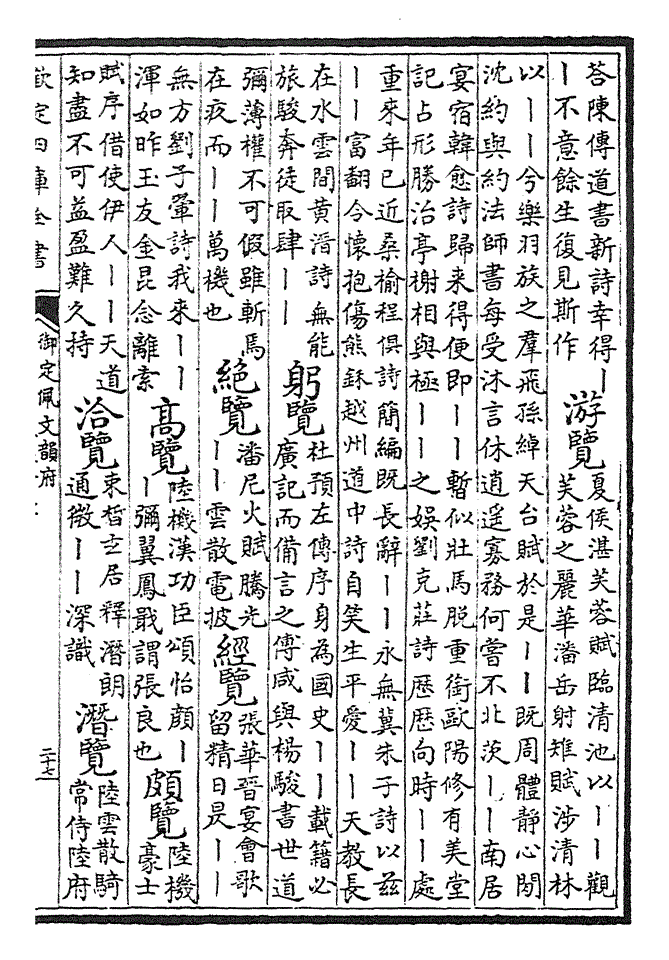 荅陳傳道書新詩幸得丨
丨不意餘生復見斯作
游覽
夏侯湛芙蓉賦臨清池以丨丨觀
芙蓉之麗華潘岳射雉賦涉清林
以丨丨兮樂羽族之羣飛孫綽天台賦於是丨丨既周體靜心閒
沈約與約法師書每受沐言休逍遥寡務何嘗不北茨丨丨南居
宴宿韓愈詩歸来得便即丨丨暫似壯馬脱重銜歐陽修有美堂
記占形勝治亭榭相與極丨丨之娛劉克莊詩歷歷向時丨丨處
重來年已近桑榆程俱詩簡編既長辭丨丨永無冀朱子詩以兹
丨丨富翻今懷抱傷熊鉌越州道中詩自笑生平愛丨丨天教長
在水雲間黄溍詩無能
旅駿奔徒取肆丨丨
躬覽
杜預左傳序身為國史丨丨載籍必
廣記而備言之傅咸與楊駿書世道
彌薄權不可假雖斬馬
在疚而丨丨萬機也
絶覽
潘尼火賦騰光
丨丨雲散電披
經覽
張華晉宴會歌
留精日是丨丨
無方劉子翬詩我來丨丨
渾如昨玉友金昆念離索
高覽
陸機漢功臣頌怡顔丨
丨彌翼鳳戢謂張良也
頗覽
陸機
豪士
賦序借使伊人丨丨天道
知盡不可益盈難久持
洽覽
束晳𤣥居釋潛朗
通微丨丨深識
潛覽
陸雲散騎
常侍陸府
欽定四庫全書
御定佩文韻府
二十七